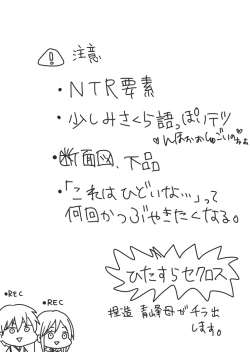 注意
・NTR要素
・少しみさくら語っぽいデツ
んほぉおおしゅごいのぉぉ
・断面図、下品
・「これはひどいな…」って
何回かつぶやきたくなる。
ひたすらセクロス
捏造 青峰母がチラ出
します。
•REC
•REC